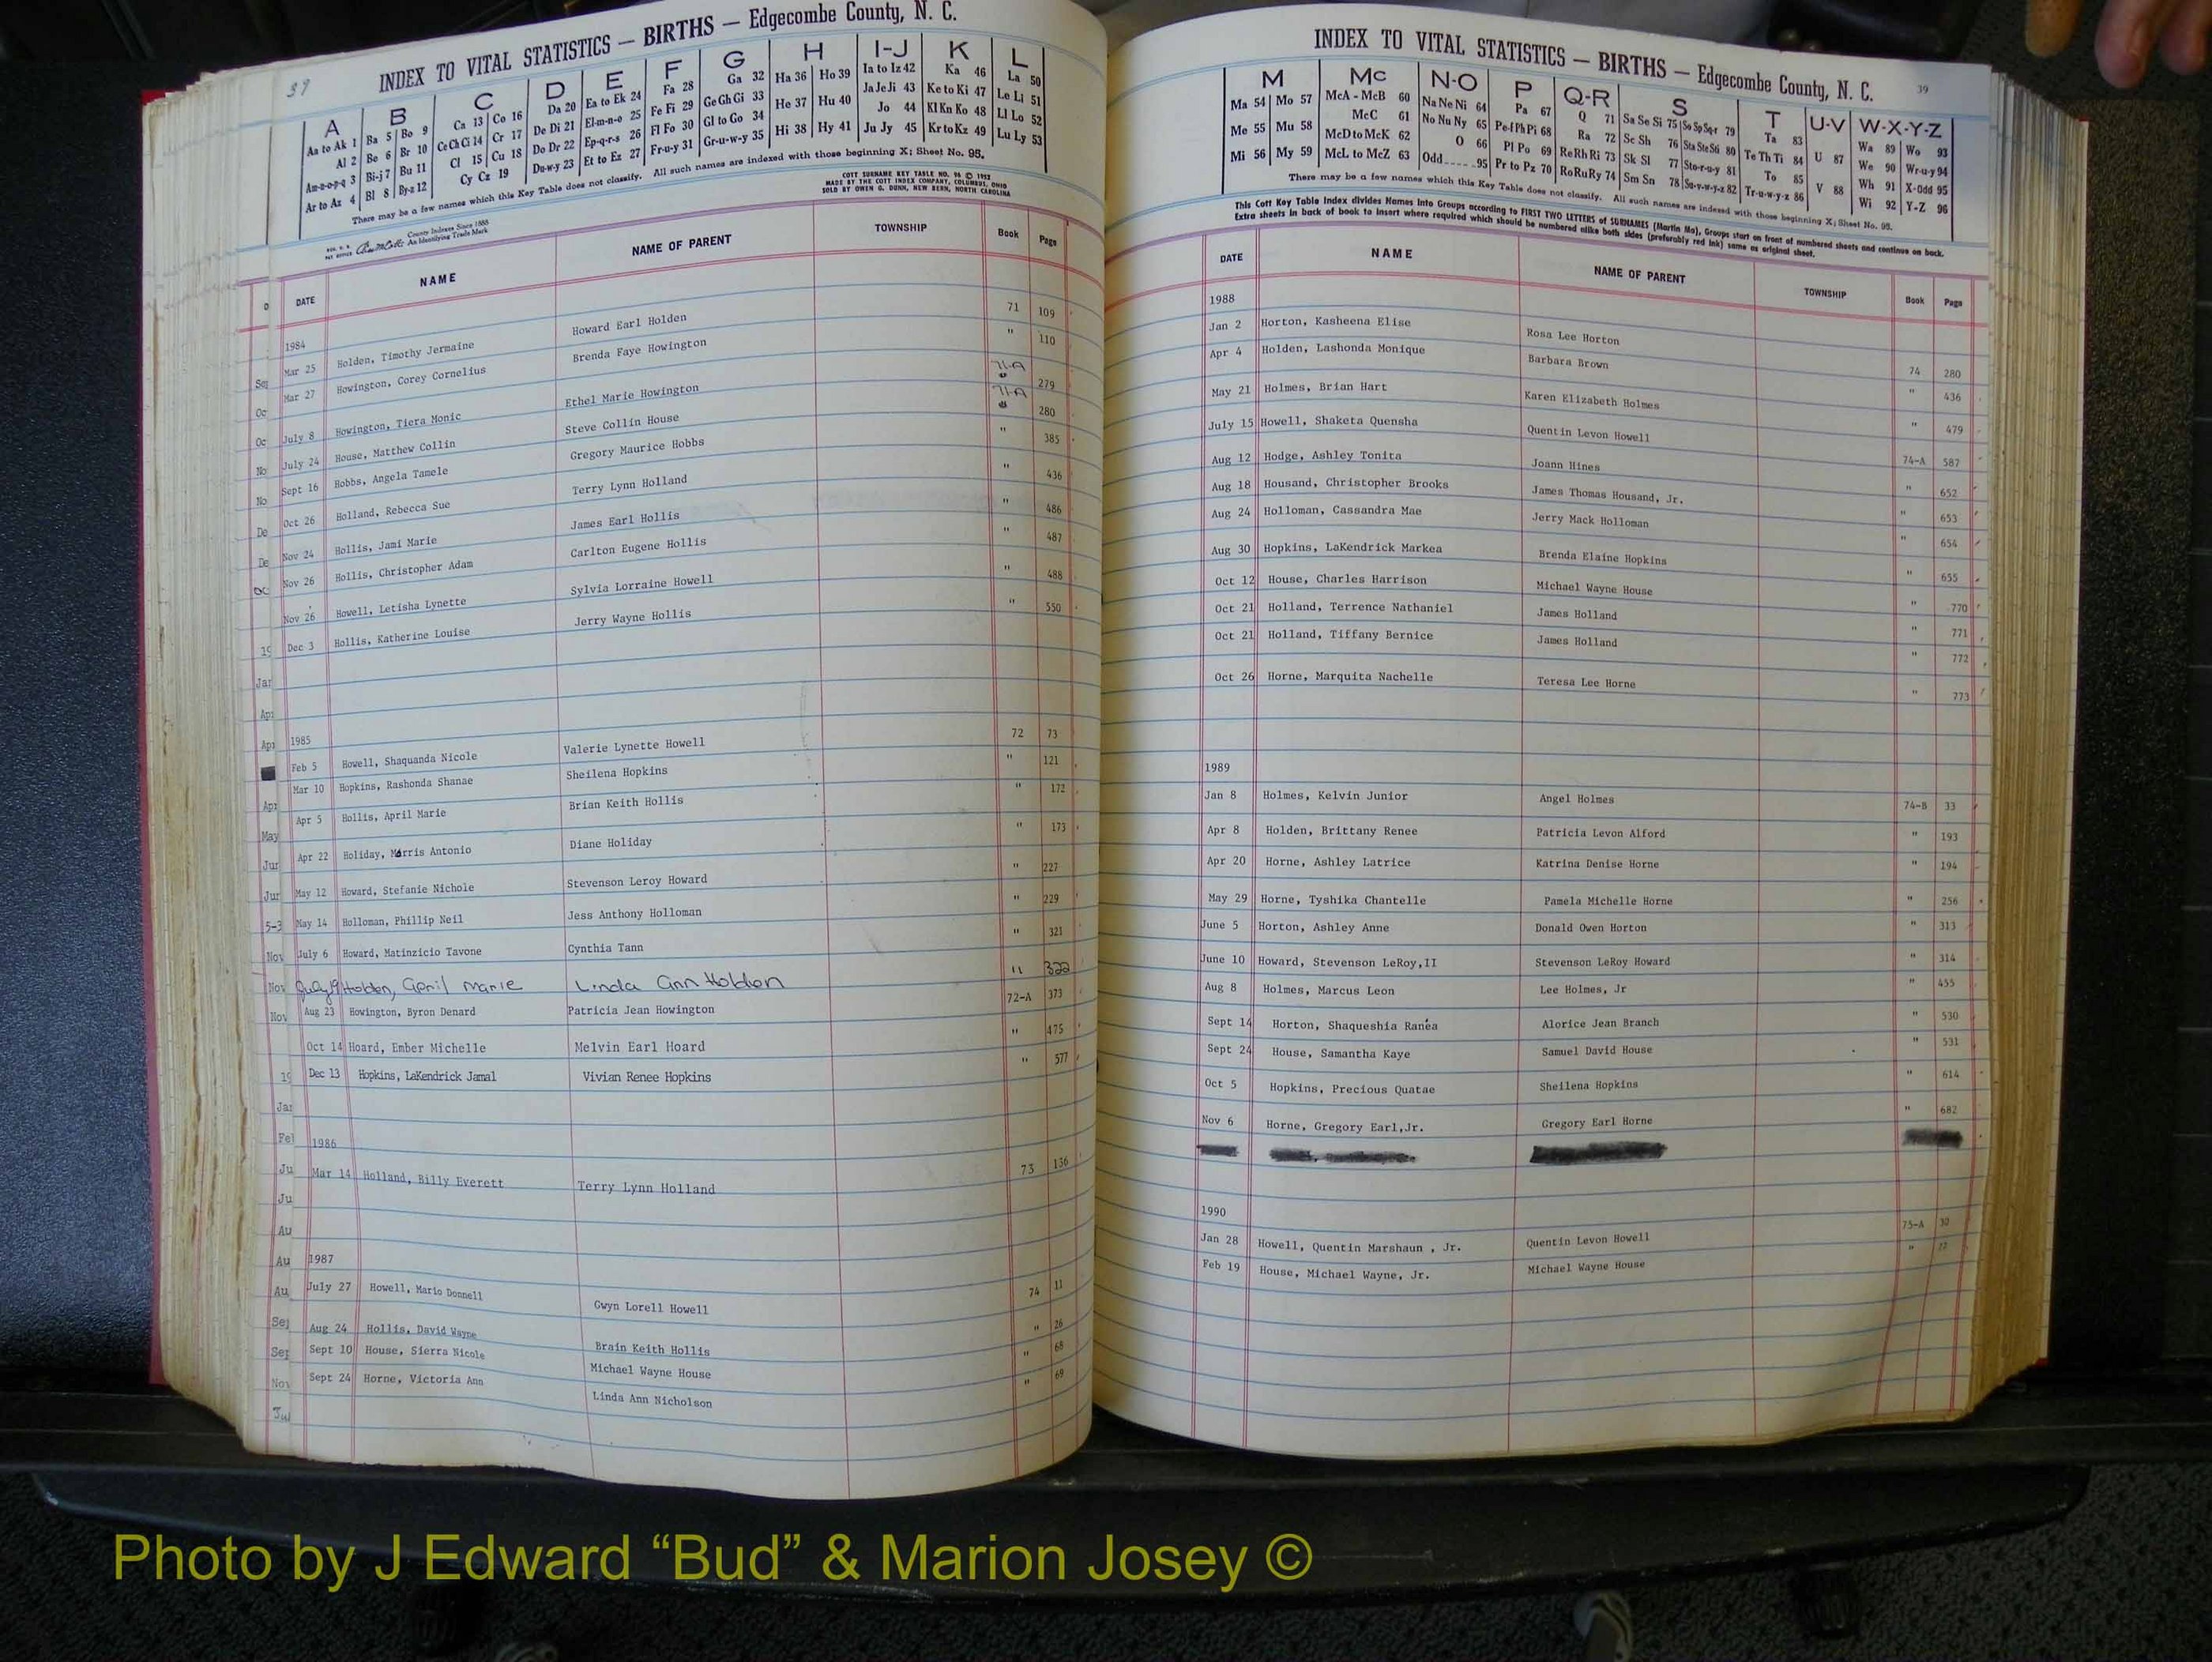 39
INDEX TO VITAL STATISTICS — BIRTHS — Edgecombe County, N. C.
A B C D E F G H I-J K L
Aa to Ak 1 Ba 5 Bo 9 Ca 13 Co 16 Da 20 Ea to Ek 24 Fa 28 Ga 32 Ha 36 Ho 39 Ia to Iz 42 Ka 46 La 50
Al 2 Be 6 Br 10 Ce Ch Ci 14 Cr 17 De Di 21 El-m-n-o 25 Fe Fi 29 Ge Gh Gi 33 He 37 Hu 40 Ja Je Ji 43 Ke to Ki 47 Le Li 51
Am-n-o-p-q 3 Bi-j 7 Bu 11 Cl 15 Cu 18 Do Dr 22 Ep-q-r-s 26 Fl Fo 30 Gl to Go 34 Hi 38 Hy 41 Jo 44 Kl Kn Ko 48 Ll Lo 52
Ar to Az 4 Bl 8 By-z 12 Cy Cz 19 Du-w-y 23 Et to Ez 27 Fr-u-y 31 Gr-u-w-y 35 Ju Jy 45 Kr to Kz 49 Lu Ly 53
There may be a few names which this Key Table does not classify. All such names are indexed with those beginning X; Sheet No. 95.
County Indexes Since 1888
An Identifying Trade Mark
COTT SURNAME KEY TABLE NO. 96 © 1952
MADE BY THE COTT INDEX COMPANY, COLUMBUS, OHIO
SOLD BY OWEN G. DUNN, NEW BERN, NORTH CAROLINA
DATE NAME NAME OF PARENT TOWNSHIP Book Page
1984
Mar 25 Holden, Timothy Jermaine Howard Earl Holden 71 109
Mar 27 Howington, Corey Cornelius Brenda Faye Howington " 110
July 8 Howington, Tiera Monic Ethel Marie Howington 71-A 279
July 24 House, Matthew Collin Steve Collin House 71-A 280
Sept 16 Hobbs, Angela Tamele Gregory Maurice Hobbs " 385
Oct 26 Holland, Rebecca Sue Terry Lynn Holland " 436
Nov 24 Hollis, Jami Marie James Earl Hollis " 486
Nov 26 Hollis, Christopher Adam Carlton Eugene Hollis " 487
Nov 26 Howell, Letisha Lynette Sylvia Lorraine Howell " 488
Dec 3 Hollis, Katherine Louise Jerry Wayne Hollis " 550
1985
Feb 5 Howell, Shaquanda Nicole Valerie Lynette Howell 72 73
Mar 10 Hopkins, Rashonda Shanae Sheilena Hopkins " 121
Apr 5 Hollis, April Marie Brian Keith Hollis " 172
Apr 22 Holiday, Morris Antonio Diane Holiday " 173
May 12 Howard, Stefanie Nichole Stevenson Leroy Howard " 227
May 14 Holloman, Phillip Neil Jess Anthony Holloman " 229
July 6 Howard, Matinzicio Tavone Cynthia Tann " 321
July 19 Holden, April Marie Linda Ann Holden " 322
Aug 23 Howington, Byron Denard Patricia Jean Howington 72-A 373
Oct 14 Hoard, Ember Michelle Melvin Earl Hoard " 475
Dec 13 Hopkins, LaKendrick Jamal Vivian Renee Hopkins " 577
1986
Mar 14 Holland, Billy Everett Terry Lynn Holland 73 136
1987
July 27 Howell, Mario Donnell Gwyn Lorell Howell 74 11
Aug 24 Hollis, David Wayne Brain Keith Hollis " 26
Sept 10 House, Sierra Nicole Michael Wayne House " 68
Sept 24 Horne, Victoria Ann Linda Ann Nicholson " 69
INDEX TO VITAL STATISTICS — BIRTHS — Edgecombe County, N. C. 39
M Mc N-O P Q-R S T U-V W-X-Y-Z
Ma 54 Mo 57 McA - McB 60 Na Ne Ni 64 Pa 67 Q 71 Sa Se Si 75 So Sp Sq-r 79 Ta 83 U 87 Wa 89 Wo 93
Me 55 Mu 58 McC 61 No Nu Ny 65 Pe-f Ph Pi 68 Ra 72 Sc Sh 76 Sta Ste Sti 80 Te Th Ti 84 V 88 We 90 Wr-u-y 94
Mi 56 My 59 McD to McK 62 O 66 Pl Po 69 Re Rh Ri 73 Sk Sl 77 Sto-r-u-y 81 To 85 Wh 91 X-Odd 95
McL to McZ 63 Odd 95 Pr to Pz 70 Ro Ru Ry 74 Sm Sn 78 Su-v-w-y-z 82 Tr-u-w-y-z 86 Wi 92 Y-Z 96
There may be a few names which this Key Table does not classify. All such names are indexed with those beginning X; Sheet No. 95.
This Cott Key Table Index divides Names Into Groups according to FIRST TWO LETTERS of SURNAMES (Martin Ma), Groups start on front of numbered sheets and continue on back.
Extra sheets in back of book to insert where required which should be numbered alike both sides (preferably red ink) same as original sheet.
DATE NAME NAME OF PARENT TOWNSHIP Book Page
1988
Jan 2 Horton, Kasheena Elise Rosa Lee Horton 74 280
Apr 4 Holden, Lashonda Monique Barbara Brown " 436
May 21 Holmes, Brian Hart Karen Elizabeth Holmes " 479
July 15 Howell, Shaketa Quensha Quentin Levon Howell 74-A 587
Aug 12 Hodge, Ashley Tonita Joann Hines " 652
Aug 18 Housand, Christopher Brooks James Thomas Housand, Jr. " 653
Aug 24 Holloman, Cassandra Mae Jerry Mack Holloman " 654
Aug 30 Hopkins, LaKendrick Markea Brenda Elaine Hopkins " 655
Oct 12 House, Charles Harrison Michael Wayne House " 770
Oct 21 Holland, Terrence Nathaniel James Holland " 771
Oct 21 Holland, Tiffany Bernice James Holland " 772
Oct 26 Horne, Marquita Nachelle Teresa Lee Horne " 773
1989
Jan 8 Holmes, Kelvin Junior Angel Holmes 74-B 33
Apr 8 Holden, Brittany Renee Patricia Levon Alford " 193
Apr 20 Horne, Ashley Latrice Katrina Denise Horne " 194
May 29 Horne, Tyshika Chantelle Pamela Michelle Horne " 256
June 5 Horton, Ashley Anne Donald Owen Horton " 313
June 10 Howard, Stevenson LeRoy,II Stevenson LeRoy Howard " 314
Aug 8 Holmes, Marcus Leon Lee Holmes, Jr " 455
Sept 14 Horton, Shaqueshia Ranea Alorice Jean Branch " 530
Sept 24 House, Samantha Kaye Samuel David House " 531
Oct 5 Hopkins, Precious Quatae Sheilena Hopkins " 614
Nov 6 Horne, Gregory Earl,Jr. Gregory Earl Horne " 682
1990
Jan 28 Howell, Quentin Marshaun , Jr. Quentin Levon Howell 75-A 30
Feb 19 House, Michael Wayne, Jr. Michael Wayne House "
Photo by J Edward “Bud” & Marion Josey ©